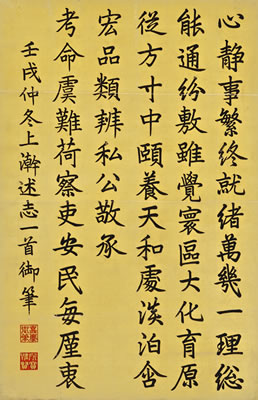 心靜事繁終就緒萬幾一理總
能通紛敷雖覺寰區大化育原
從方寸中頤養天和處淡泊含
宏品類辨私公敬承
考命虞難荷察吏安民每廑衷
壬戌仲冬上澣述志一首御筆